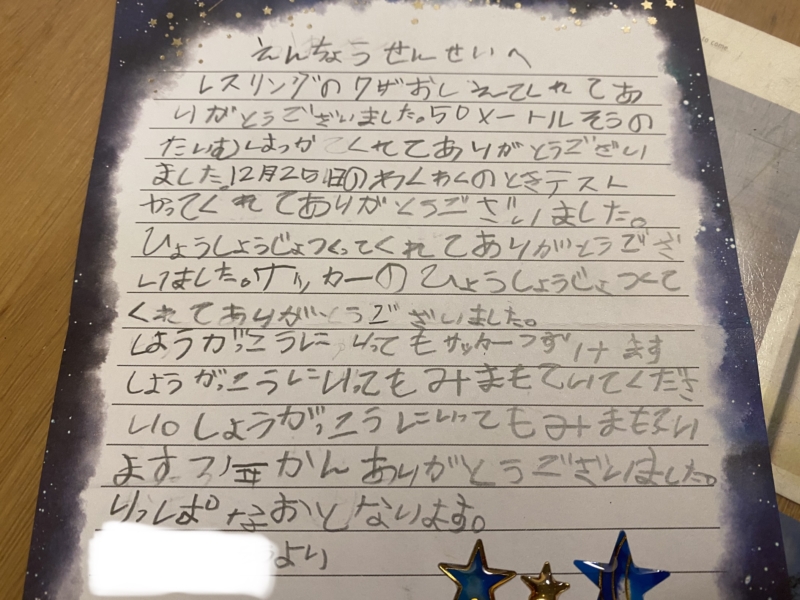 えんちょうせんせいへ
レスリングのワザおしえてくれてあ
りがとうございました。50メートルそうの
たいむはっかてくれてありがとうござい
ました。12月25日のわくわくのときテスト
やってくれてありがとうございました。
ひょうしょうじょつくってくれてありがとうござ
いました。サッカーのひょうしょうじょつくて
くれてありがとうございました。
しょうがっこうにいってもサッカーつずけます
しょうがっこうにいってもみまもていてくださ
い。しょうがっこうにいってもみまもるい
ます。3年かんありがとうございました。
りっぱなおとなります。
うより